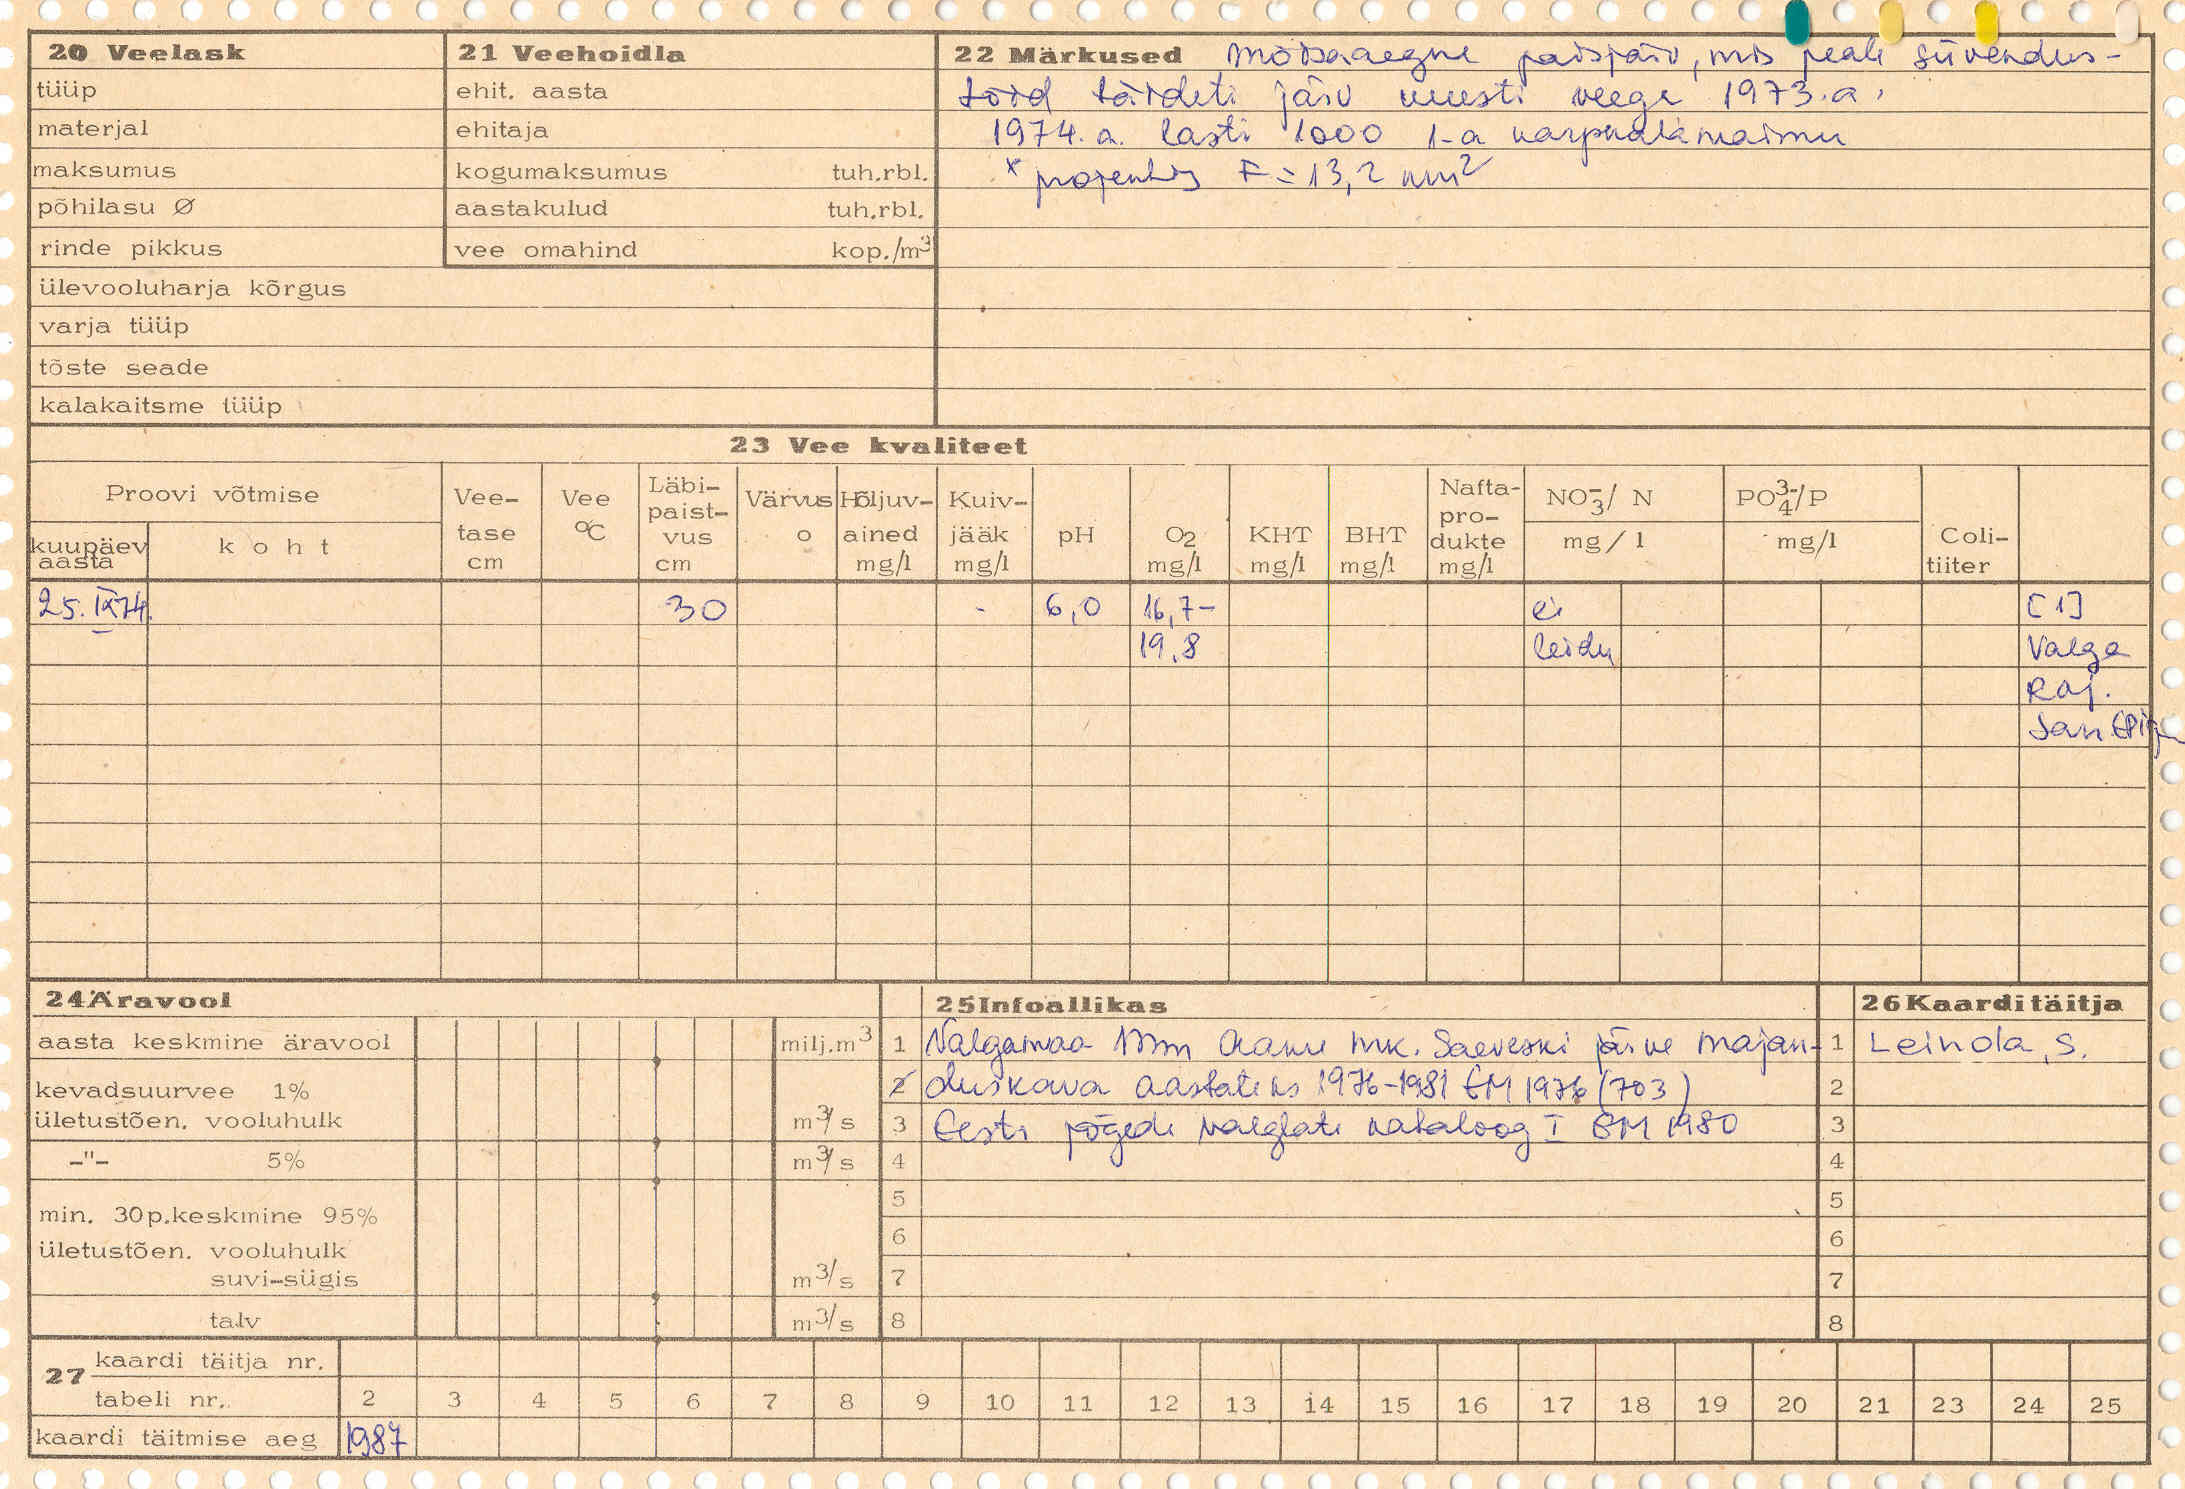 20 Veelask
tüüp
materjal
maksumus
põhilasu Ø
rinde pikkus
ülevooluharja kõrgus
varja tüüp
tõste seade
kalakaitsme tüüp
21 Veehoidla
ehit. aasta
ehitaja
kogumaksumus tuh.rbl.
aastakulud tuh.rbl.
vee omahind kop./m³
22 Märkused Mõisaaegne paisjärv, mis peale süvendus-
töid täideti järv uuesti veega 1973.a.
1974.a. lasti 1000 1-a karpkala maimu
* projektis F = 13,2 km²
23 Vee kvaliteet
Proovi võtmise
kuupäev aasta
koht
Vee-tase cm
Vee °C
Läbi-paist-vus cm
Värvus o
Hõljuv-ained mg/l
Kuiv-jääk mg/l
pH
O2 mg/l
KHT mg/l
BHT mg/l
Nafta-pro-dukte mg/l
NO₃⁻/ N mg/l
PO₄³⁻/P mg/l
Coli-tiiter
25.IX74. 30 - 6,0 16,7- ei [1]
19,8 leidu Valga
Raj.
San Epi
24 Äravool
aasta keskmine äravool milj.m³
kevadsuurvee 1%
ületustõen. vooluhulk m³/s
-"- 5% m³/s
min. 30p.keskmine 95%
ületustõen. vooluhulk
suvi-sügis m³/s
talv m³/s
25 Infoallikas
1 Valgamaa Mm Aakre mk. Saeveski järve majan-
2 duskava aastateks 1976-1981 EM 1976 (703)
3 Eesti jõgede valglate kataloog I EM 1980
4
5
6
7
8
26 Kaarditäitja
1 Leinola, S.
2
3
4
5
6
7
8
27 kaardi täitja nr.
tabeli nr. 2 3 4 5 6 7 8 9 10 11 12 13 14 15 16 17 18 19 20 21 23 24 25
kaardi täitmise aeg 1987